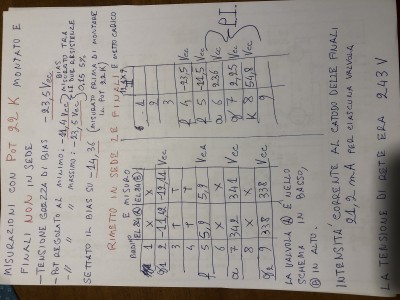 MISURAZIONI CON POT 22 K MONTATO E
FINALI NON IN SEDE
- TENSIONE GREZZA DI BIAS -23,5 Vcc
- POT REGOLATO AL MINIMO: -11,4 Vcc BIAS
- " " " MASSIMO: -23,5 Vcc
MISURATO TRA
LE DUE RESISTENZE
SETTATO IL BIAS SU -14,36 (MISURATO PRIMA DI MONTARE
IL POT 22 K)
RIMETTO IN SEDE LE FINALI E METTO CARICO
E MISURO
EL34 A EL34 B
1 X X
2 -11,12 -12,11 Vcc
3 † †
4 † †
f 5 5,9 5,9 VCA
6 X X
a 7 342 341 Vcc
8 X X
g2 9 338 338 Vcc
1
2
3
f 4 -11,5 Vcc
f 5 -11,5 Vcc
a 6 236 Vcc
7 2,25 Vcc
K 8 54,8 Vcc
9
P.I.
LA VALVOLA A È NELLO
SCHEMA IN BASSO,
B IN ALTO.
INTENSITÀ CORRENTE AL CATODO DELLE FINALI
21,2 mA PER CIASCUNA VALVOLA
LA TENSIONE DI RETE ERA 243 V